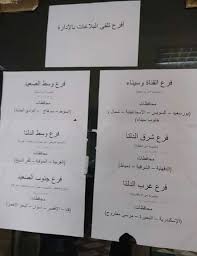 أفرع تلقى البلاغات بالإدارة
فرع القناة وسيناء
محافظات
(بورسعيد – السويس – الإسماعيلية – شمال و
جنوب سيناء)
فرع شرق الدلتا
محافظات
(الدقهلية – الشرقية – دمياط)
فرع غرب الدلتا
محافظات
(الإسكندرية – البحيرة – مرسى مطروح)
فرع وسط الصعيد
محافظات
(أسيوط – سوهاج – الوادى الجديد)
فرع وسط الدلتا
محافظات
(الغربية – المنوفية – كفر الشيخ)
فرع جنوب الصعيد
محافظات
(قنا – الأقصر – أسوان – البحر الأحمر)